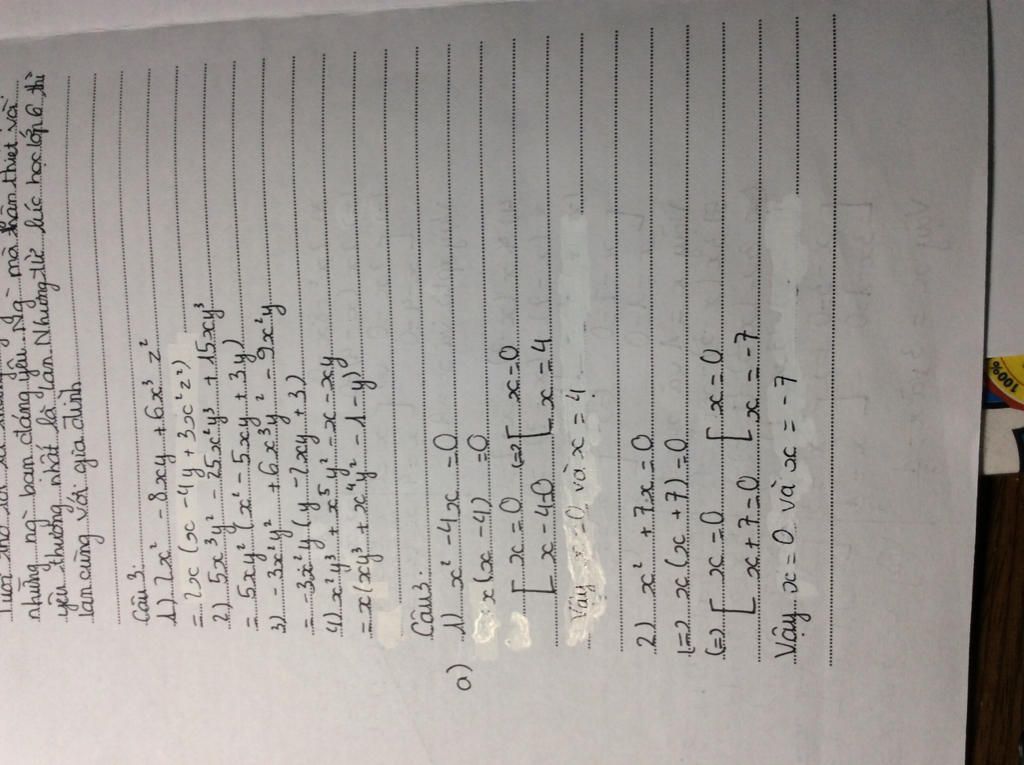 những ng² bạn đáng yêu. Ng² mà thân thiết và
yêu thương nhất là lan. Nhưng từ lúc học lớp 6 thì
lan cùng với gia đình
Câu 3:
1) 2x² - 8xy + 6x³z²
= 2x (x - 4y + 3x²z²)
2) 5x³y² - 25x²y³ + 15xy³
= 5xy² (x² - 5xy + 3y)
3) -3x²y² + 6x³y² - 9x²y
= -3x²y (y - 2xy + 3)
4) x²y³ + x⁵y² - x - xy
= x (xy³ + x⁴y² - 1 - y)
Câu 3:
a) 1) x² - 4x = 0
x (x - 4) = 0
[ x = 0 (=) [ x = 0
[ x - 4 = 0 [ x = 4
Vậy x = 0 và x = 4
2) x² + 7x = 0
(=) x (x + 7) = 0
(=) [ x = 0 [ x = 0
[ x + 7 = 0 [ x = -7
Vậy x = 0 và x = -7
100%